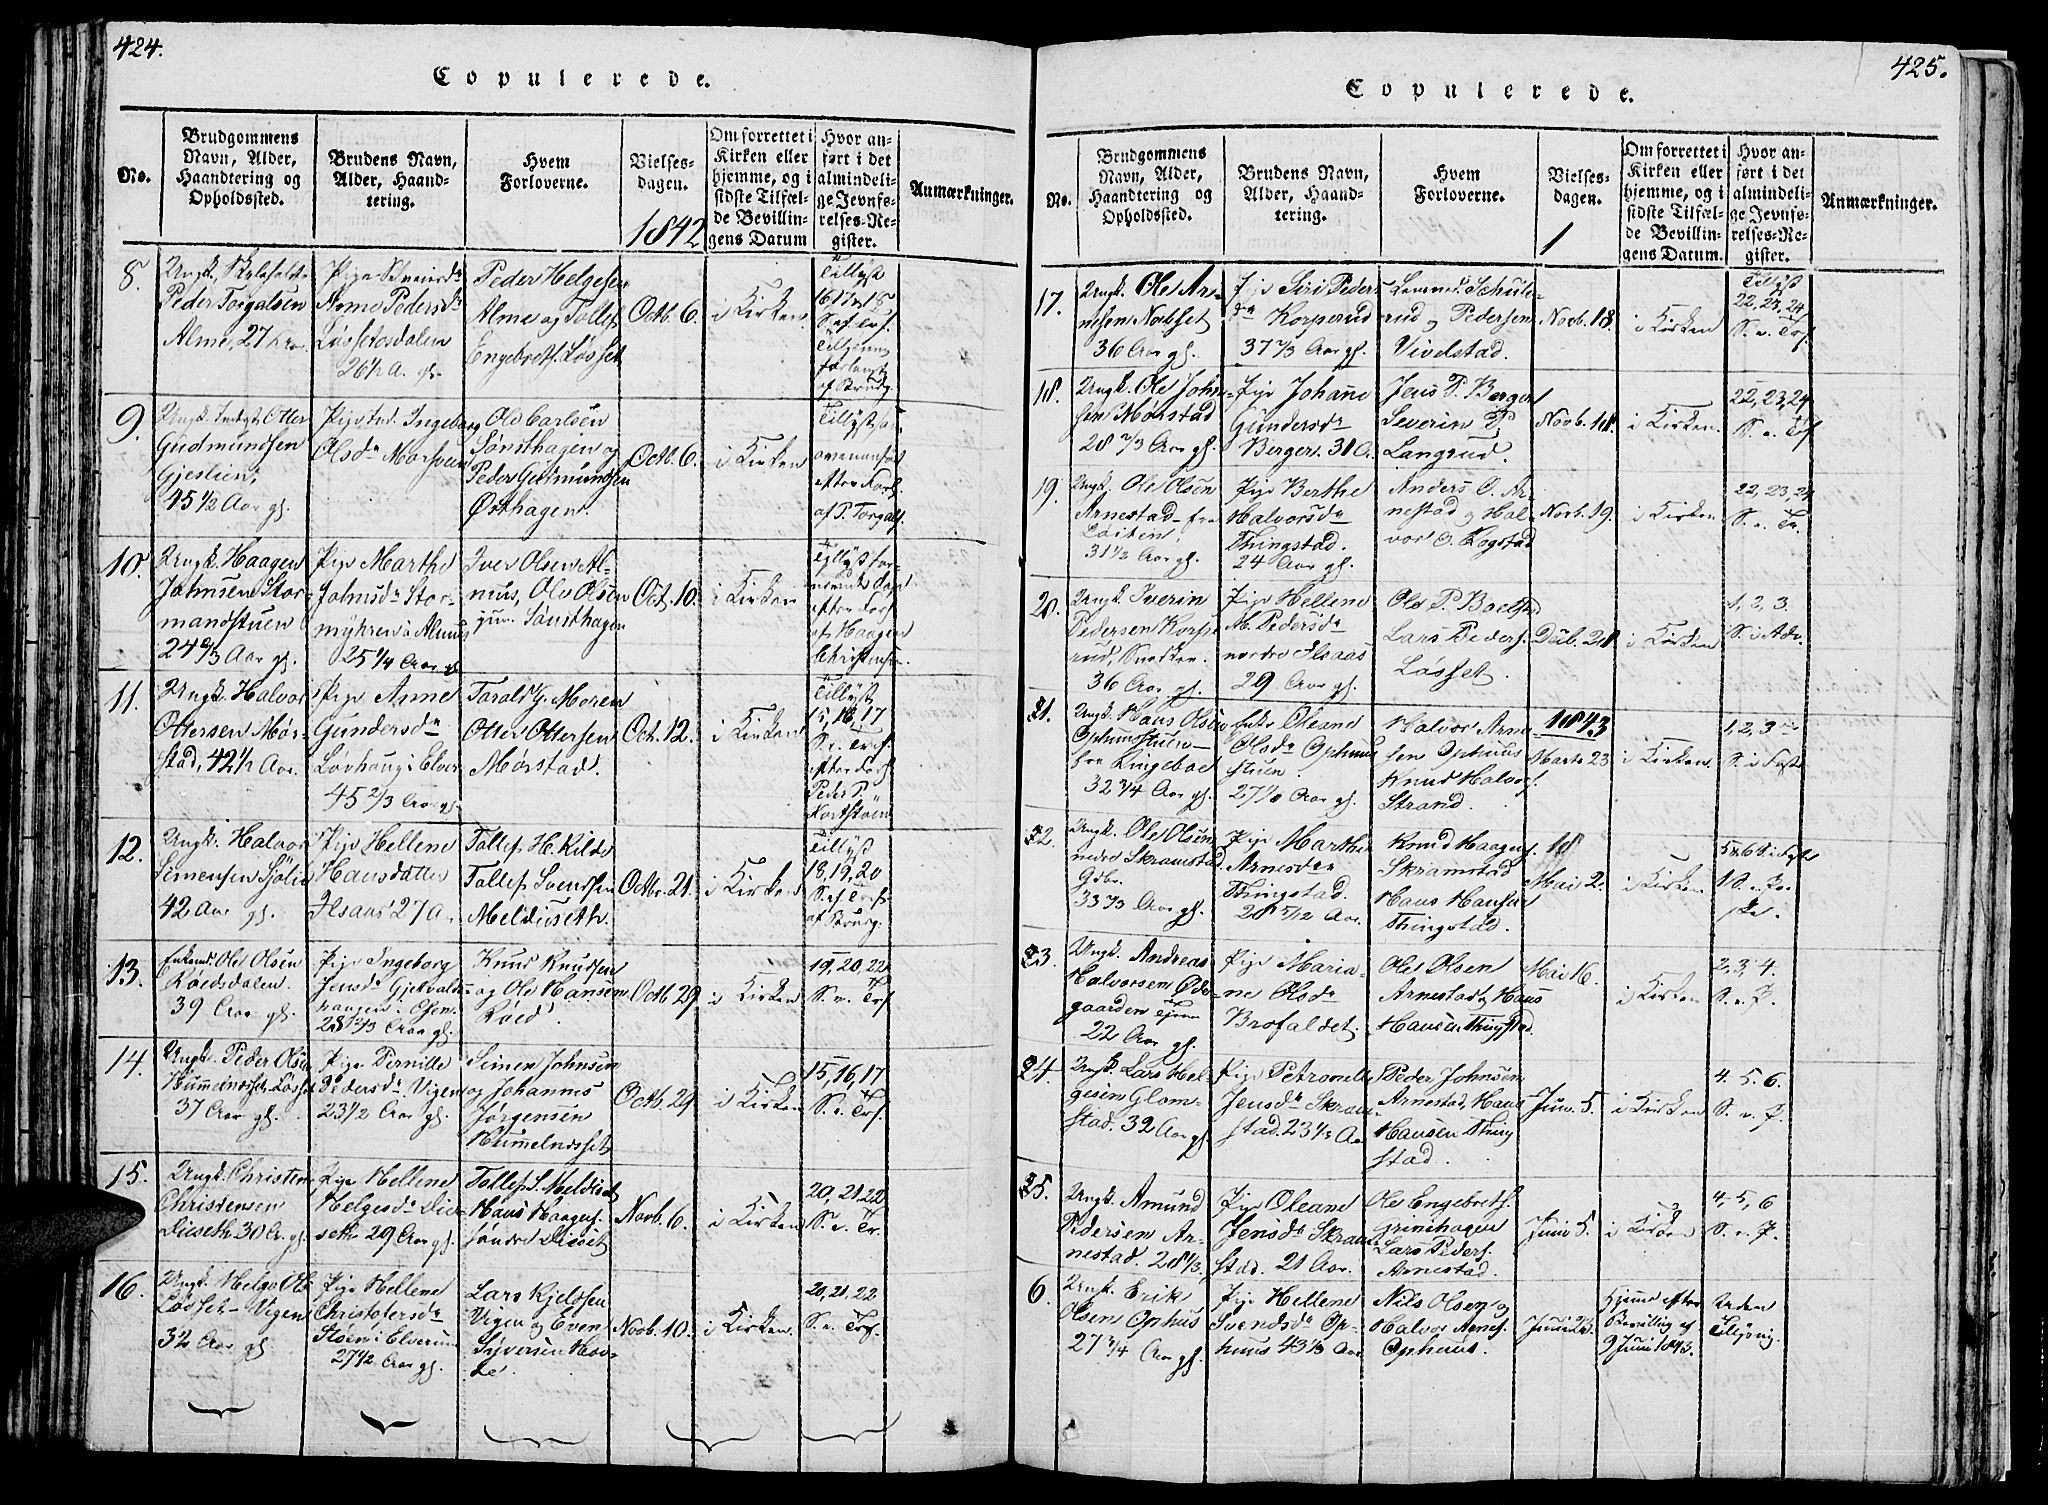 424.
Copulerede.
No.
Brudgommens
Navn, Alder,
Haandtering og
Opholdssted.
Brudens Navn,
Alder, Haand-
tering.
Hvem
Forloverne.
Vielses-
dagen.
1842
Om forrettet i
Kirken eller
hjemme, og i
sidste Tilfæl-
de Bevillin-
gens Datum
Hvor an-
ført i det
almindeli-
ge Jevnfø-
relses-Re-
gister.
Anmærkninger.
8.
Peder Torgalsen
Alme, 27 Aar
Arne Pedersdr
Løssetesdalen
26½ A. gl.
Peder Helgesen
Alme og Tollef
Engebretf. Løsset
Octb. 6.
i Kirken
Tillyst
16 17 18
9.
Otter
Gudmundsen
Gjeslien,
45 1/2 Aar gl.
Ingeborg
Olsdr Morsveen
Ole Carlsen
Sønsthagen og
Peder Gudmundsen
Østhagen.
Octb. 6.
i Kirken
10.
Ungk. Haagen
Johnsen Stor-
mandstuen
24 2/3 Aar gl.
Pige Marthe
Johnsdr Stor-
myhren i Almus
25 1/4 Aar gl.
Iver Olsen Al-
mus, Ole Olsen
Sønsthagen
Oct. 10.
i Kirken
11.
Ungk. Halvor
Ottersen Mør-
stad, 42½ Aar.
Pige Anne
Gundersdr
Lovhaug i Elver
45 2/3 Aar gl.
Tarald G. Moren
Otter Ottersen
Mørstad.
Oct. 12.
i Kirken
Tillyst
15, 16, 17
12.
Ungk. Halvor
Simensen Sjølie
42 Aar gl.
Pige Hellene
Hansdatter
Ilsaas 27 A.
Tollef H. Kilde
Tollef Svendsen
Meldieseth.
Octbr. 21.
i Kirken
Tillyst
18, 19, 20
13.
Enkemd. Ole Olsen
Røedsdalen
39 Aar gl.
Pige Ingeborg
Jensdr
28 2/3 Aar gl.
Knud Knudsen
og Ole Hansen
Røed.
Octb 29.
i Kirken
19, 20, 22
S. e. Trf.
14.
Ungk. Peder Olsen
Hummelnæsset Løsset
37 Aar gl.
Pige Pernille
Pedersdr Vigen
23 1/2 Aar gl.
Simen Johnsen
og Johannes
Jørgensen
Hummelnæsset
Octb. 29.
i Kirken
15, 16, 17
S. e. Trf.
15.
Ungk. Christen
Christensen
Dieseth 30 A. gl.
Pige Hellene
Helgesdr Die
seth 29 Aar gl.
Tollef S. Meldiset
Hans Haagens.
søndre Dieset
Novb. 6.
i Kirken
20, 21, 22
S. e. Tr.
16.
Ungk. Helge Ols
Løsset-Vigen
32 Aar gl.
Pige Hellene
Christofersdr
Støen i Elverum
27½ Aar gl.
Lars Kjelsen
Vigen og Even
Syversen Hov-
de.
Novb. 10.
i Kirken.
20, 21, 22
S. e. Trf.
425.
Copulerede.
No.
Brudgommens
Navn, Alder,
Haandtering og
Opholdssted.
Brudens Navn,
Alder, Haand-
tering.
Hvem
Forloverne.
Vielses-
dagen.
1
Om forrettet i
Kirken eller
hjemme, og i
sidste Tilfæl-
de Bevillin-
gens Datum.
Hvor an-
ført i det
almindeli-
ge Jevnfø-
relses-Re-
gister.
Anmærkninger.
17.
Ungk. Ole Ar-
nesen Nordset
36 Aar gl.
Pige Siri Peders
dr Korperud
37 2/3 Aar gl.
Schule-
rud og Pedersen
Vivelstad.
Novb. 18.
i Kirken
Tillyst
22, 23, 24
S. e. Trf.
18.
Ungk. Ole John-
sen Mørstad
28 2/3 Aar gl.
Pige Johane
Gundersdr
Berger. 31 A.
Jens P. Berger
Severin P.
Langrud.
Novb. 18.
i Kirken.
22, 23, 24
S. e. Trf
19.
Ungk. Ole Olsen
Arnestad fra
Løiten.
31½ Aar gl.
Pige Berthe
Halvorsdr
Thingstad.
24 Aar gl.
Anders O. Ar-
nestad og Hal-
vor O. Rogstad
Novb. 19.
i Kirken
22, 23, 24
S. e. Tr.
20.
Ungk. Iverin
Pedersen Korpe
rud, Snedker.
36 Aar gl.
Pige Hellene
M. Pedersdr
nordre Ilsaas
29 Aar gl.
Ole P. Boelst
Lars Peders.
Løsset.
Decb. 28
i Kirken
1, 2, 3.
S. i Adv.
21.
Ungk. Hans Olsen
Ophuusstuen
fra Ringeboe
32 3/4 Aar gl.
Enke Oleane
Olsdr Ophuus
stuen.
Halvor Arne
sen Ophuus
Knud Halvors.
Strand.
1843
Marts 23
i Kirken.
1, 2, 3
S. i Faste
22.
Ungk. Ole Olsen
nedre Skramstad
Gdbr.
33 1/3 Aar gl.
Pige Marthe
Arnesdr
Thingstad.
28 5/12 Aar.
Knud Haagens.
Skramstad
Hans Hansen
Thingstad.
18
Mai 2.
i Kirken
23.
Ungk. Andreas
Halvorsen Øde-
gaarden
22 Aar gl.
Pige Maria-
ne Olsdr
Brofaldet.
Ole Olsen
Arnestad, Hans
Hansen Thingstad.
Mai 16.
i Kirken
2, 3, 4.
S. e. P.
24.
Ungk. Lars Hel-
gesen Glom-
stad. 32 Aar gl.
Pige Petronelle
Jensdr Skram-
stad. 23½ Aar
Peder Johnsen
Arnestad, Hans
Hansen Thing
stad.
Juni 5.
i Kirken
4. 5. 6.
S. e. P.
25.
Ungk. Amund
Pedersen Ar-
nestad. 28 1/3.
Pige Oleane
Jensdr Skram
stad. 21 Aar.
Ole Engebrets.
Grinehagen
Lars Peders.
Arnestad.
Juni 5.
i Kirken
4, 5, 6
S. e. P.
6.
Ungk. Erik
Olsen Ophus
27 3/4 Aar gl.
Pige Hellene
Svendsdr Op-
huus 43 1/3 Aar
Nils Olsen og
Halvor Arnes.
Ophuus.
Juni 23.
Hjemme efter
Bevilling af
9 Juni 1843.
Uden
Tillysng.